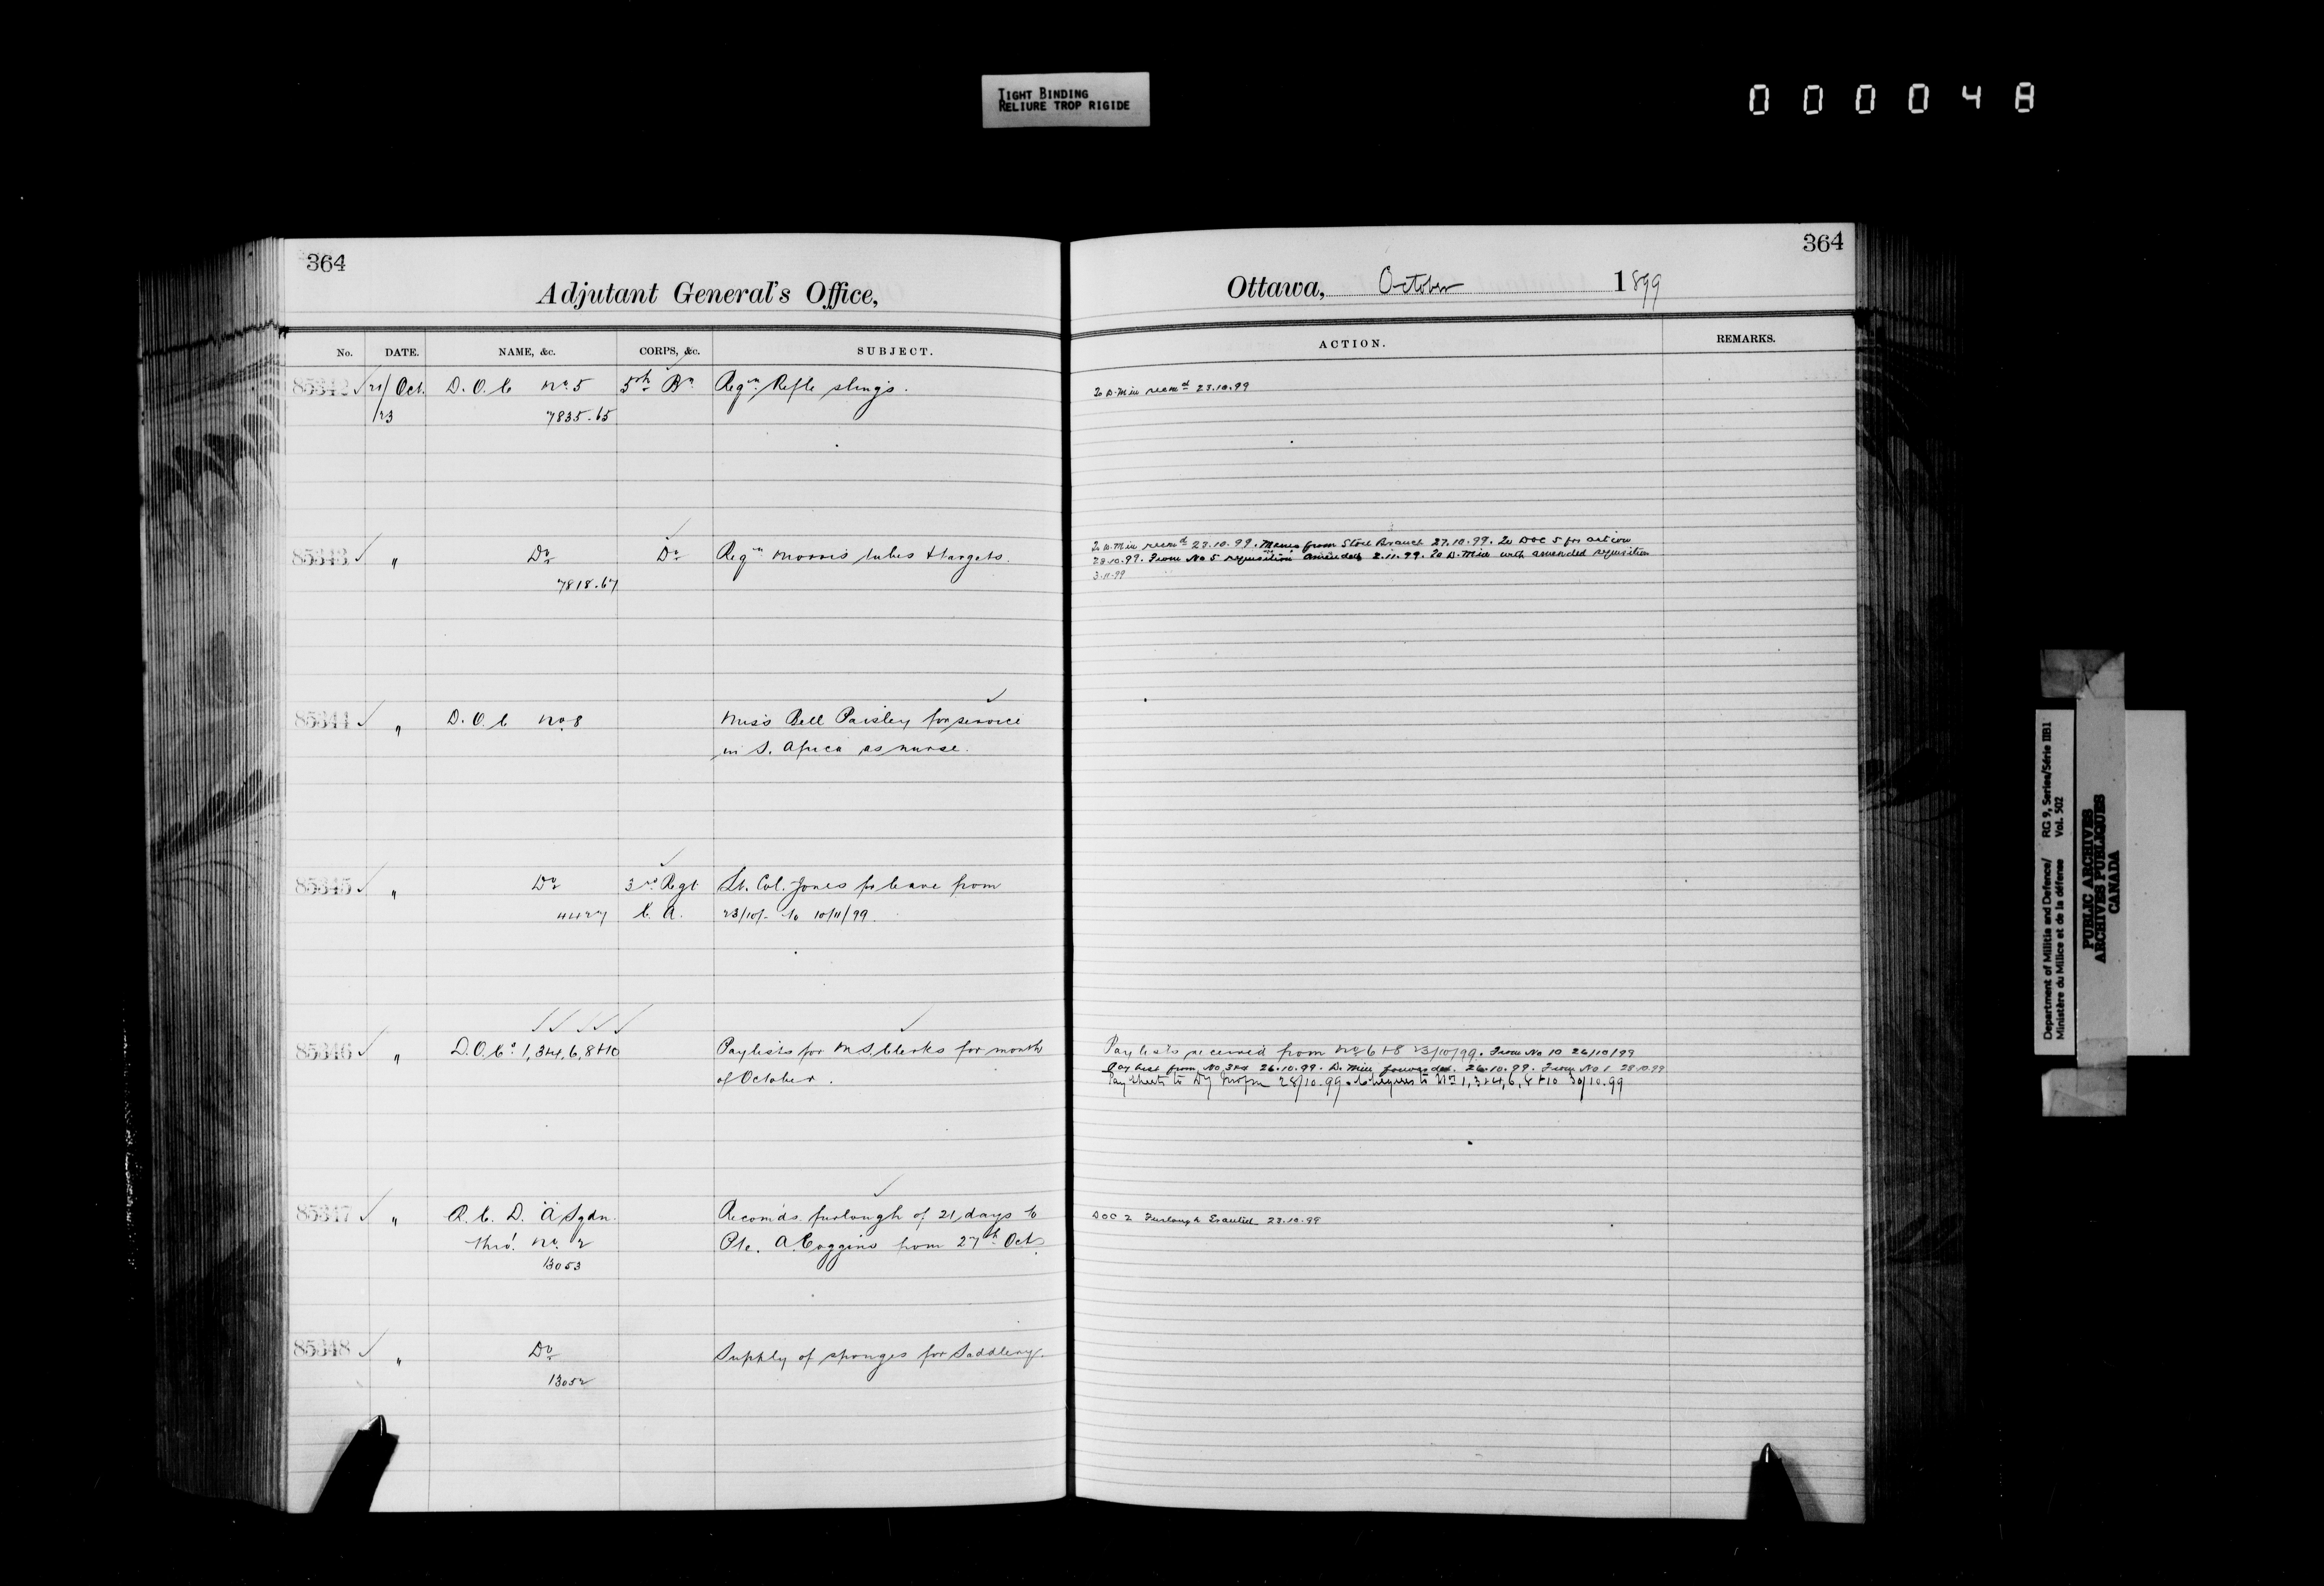 TIGHT BINDING
RELIURE TROP RIGIDE
000048
364
Adjutant General's Office,
No. DATE. NAME, &c. CORPS, &c. SUBJECT.
85342 ✓ 21/ Oct. D.O.C No. 5 5th Bn Reqn. Rifle slings.
/23 7835-65
85343 ✓ " Do Do Reqn Morris tubes & targets.
7818-67
85344 ✓ " D.O.C No. 8 Miss Bell Paisley for service
in S. Africa as nurse.
85345 ✓ " Do 3rd Regt Lt. Col. Jones for leave from
4427 C.A. 23/10/- to 10/11/99.
85346 ✓ " D.O.Cs 1, 3&4, 6, 8&10 Paylists for M.S. Clerks for month
of October.
85347 ✓ " R.C.D. "A" Sqdn. Recomds. furlough of 21 days to
thro'. No. 2 Pte. A. Coggins from 27th Oct.
13053
85348 ✓ " Do Supply of sponges for Saddlery.
13052
364
Ottawa, October 1899
ACTION. REMARKS.
To D. Min recmd 23.10.99
To D. Min recmd 23.10.99. Memo from Store Branch 27.10.99. To DOC 5 for action
28.10.99. From No 5 requisition amended 2.11.99. To D. Min with amended requisition
3.11.99
Paylists received from No 6 & 8 23/10/99. From No 10 26/10/99
Pay list from No 3&4 26.10.99. D. Min forwarded. 26.10.99. From No 1 28.10.99
Pay sheets to 28/10.99. Cheques to Nos 1, 3&4, 6, 8 & 10 30/10.99
DOC 2 Furlough Granted 23.10.99
Department of Militia and Defence/ RG 9, Series/Série IIB1
Ministère du Milice et de la défense Vol. 502
PUBLIC ARCHIVES
ARCHIVES PUBLIQUES
CANADA